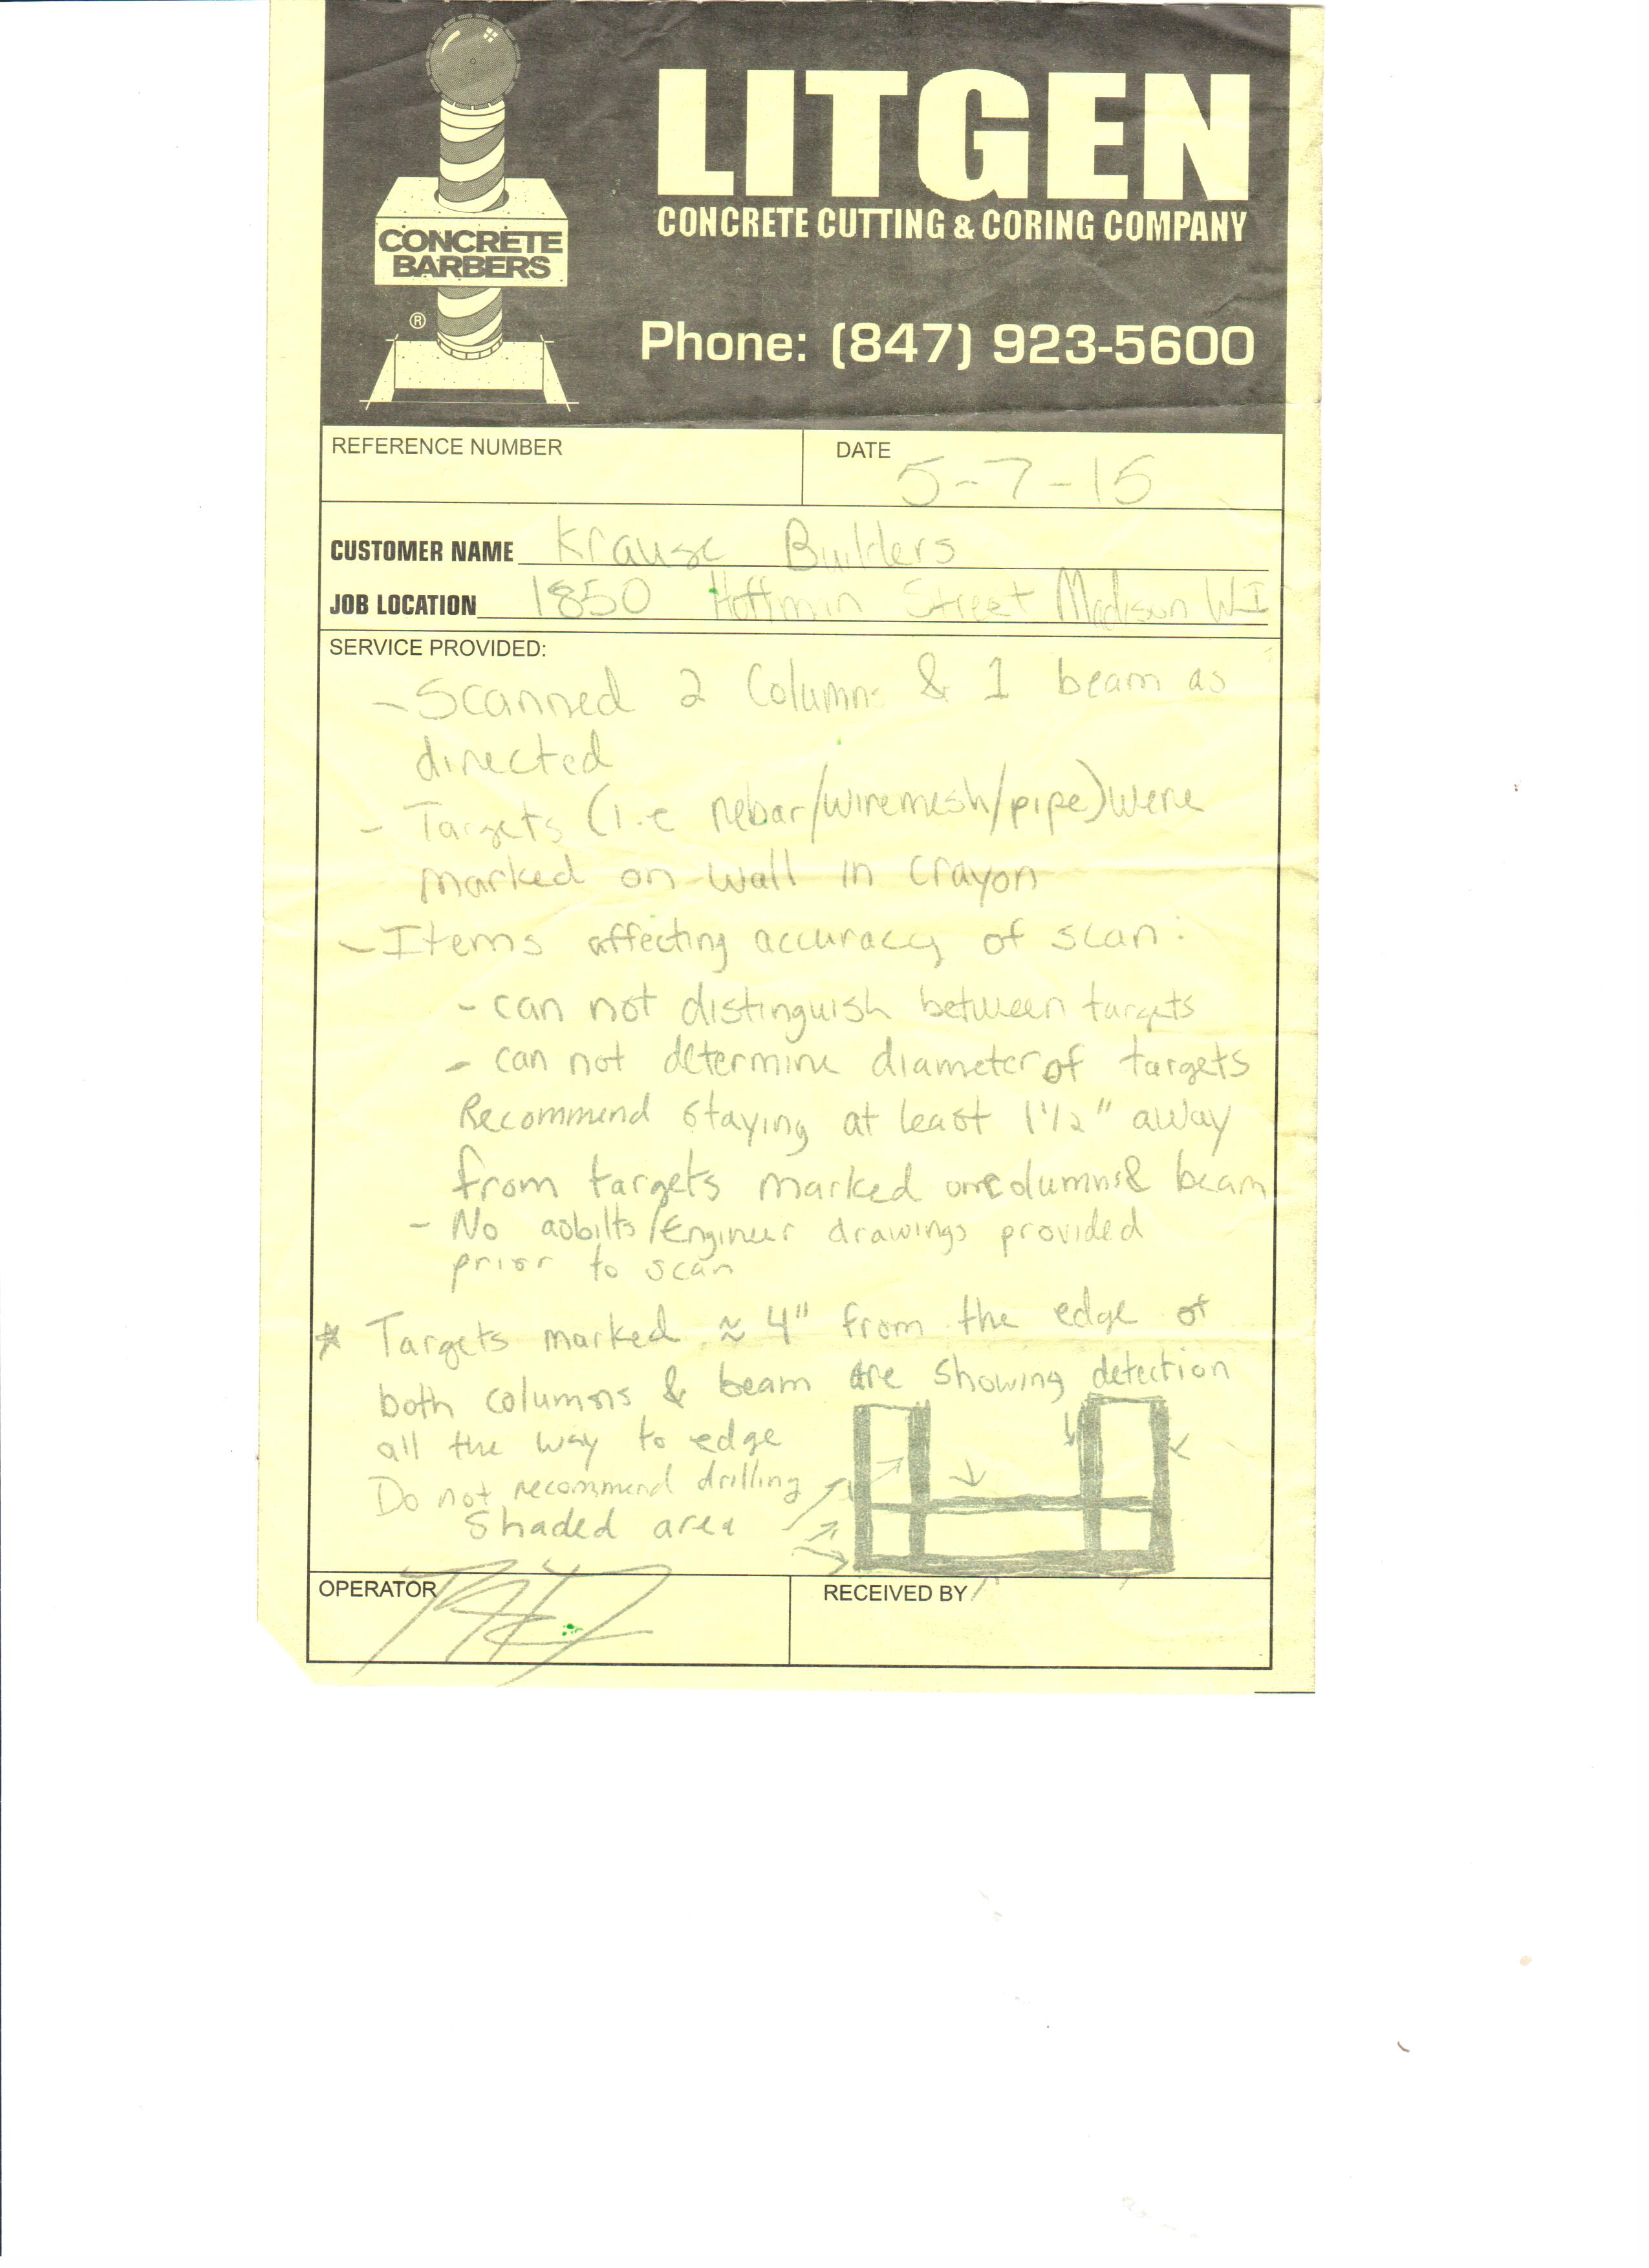 LITGEN
CONCRETE CUTTING & CORING COMPANY
CONCRETE
BARBERS
®
Phone: (847) 923-5600
REFERENCE NUMBER
DATE 5-7-15
CUSTOMER NAME Krause Builders
JOB LOCATION 1850 Hoffman Street Madison WI
SERVICE PROVIDED:
- Scanned 2 Columns & 1 beam as
directed
- Targets (i.e rebar/wiremesh/pipe) were
marked on wall in Crayon
- Items affecting accuracy of scan:
- can not distinguish between targets
- can not determine diameter of targets
Recommend staying at least 1 1/2" away
from targets marked on columns & beam
- No asbilts/Engineer drawings provided
prior to scan
* Targets marked ≈ 4" from the edge of
both columns & beam are showing detection
all the way to edge
Do not recommend drilling
shaded area
OPERATOR
RECEIVED BY